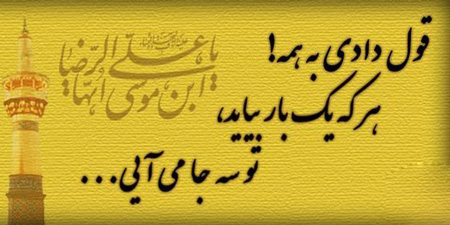 قول دادی به همه!
هر که یک بار بیاید،
تو سه جا می آیی...
یا علی الرضا
ابن موسی ایها